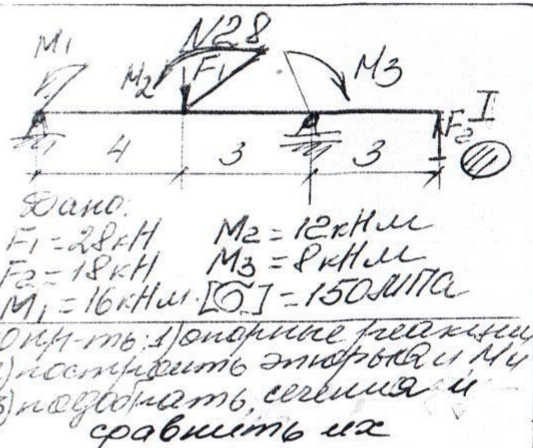 N28
M1
M2
F1
M3
F2
I
4
3
3
Дано:
F1=28кН M2=12кНм
F2=18кН M3=8кНм
M1=16кНм [σ]=150МПа
Опр-ть: 1) опорные реакции
2) построить эпюры Q и Mи
3) подобрать сечения и
сравнить их